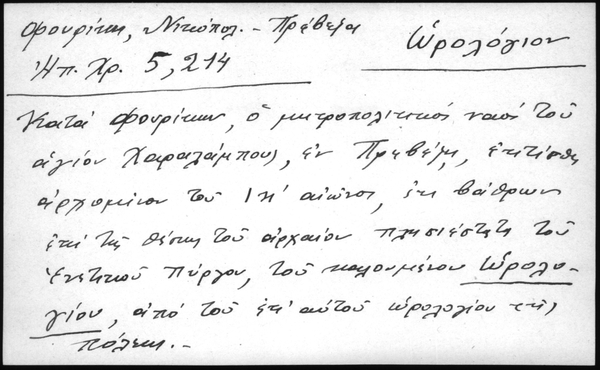 Φουρίκη, Νικόπολ. - Πρέβεζα
Ὡρολόγιον
Ἠπ. Χρ. 5, 214
Κατά Φουρίκην, ὁ μητροπολιτικός ναός τοῦ
ἁγίου Χαραλάμπους, ἐν Πρεβέζῃ, ἐκτίσθη
ἀρχομένου τοῦ ΙΗ' αἰῶνος, ἐκ βάθρων
ἐπί τῆς θέσης τοῦ ἀρχαίου πλησιέστατα τοῦ
Ἑνετικοῦ Πύργου, τοῦ καλουμένου Ὡρολο-
γίου, ἀπό τοῦ ἐπ' αὐτοῦ ὡρολογίου τῆς
πόλεως.-